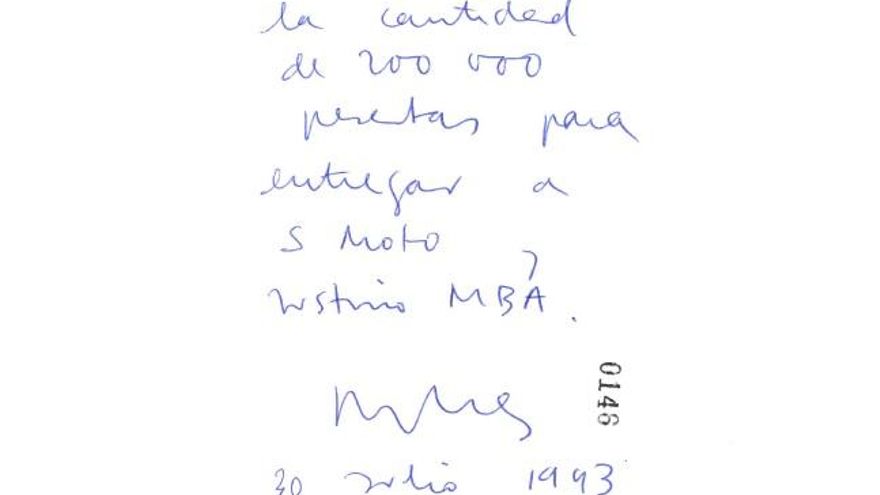 la cantidad
de 200 000
pesetas para
entregar a
S Moto
Justino MBÁ.
0146
30 Julio 1993